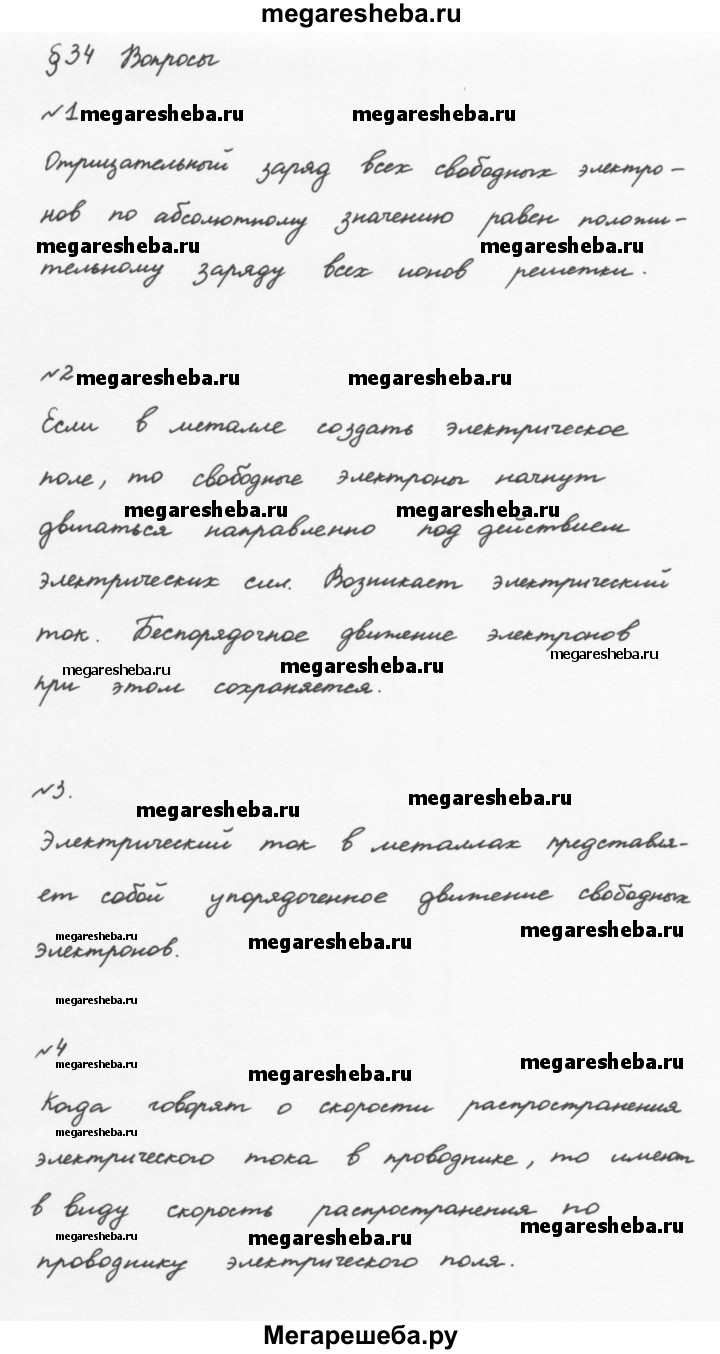 megaresheba.ru
§34 Вопросы
№1 megaresheba.ru megaresheba.ru
Отрицательный заряд всех свободных электро-
нов по абсолютному значению равен положи-
megaresheba.ru megaresheba.ru
тельному заряду всех ионов решетки.
№2 megaresheba.ru megaresheba.ru
Если в металле создать электрическое
поле, то свободные электроны начнут
megaresheba.ru megaresheba.ru
двигаться направленно под действием
электрических сил. Возникает электрический
ток. Беспорядочное движение электронов
megaresheba.ru megaresheba.ru megaresheba.ru
при этом сохраняется.
№3.
megaresheba.ru megaresheba.ru
Электрический ток в металлах представля-
ет собой упорядоченное движение свободных
megaresheba.ru megaresheba.ru megaresheba.ru
электронов.
megaresheba.ru
№4
megaresheba.ru megaresheba.ru megaresheba.ru
Когда говорят о скорости распространения
megaresheba.ru
электрического тока в проводнике, то имеют
в виду скорость распространения по
megaresheba.ru megaresheba.ru megaresheba.ru
проводнику электрического поля.
Мегарешеба.ру